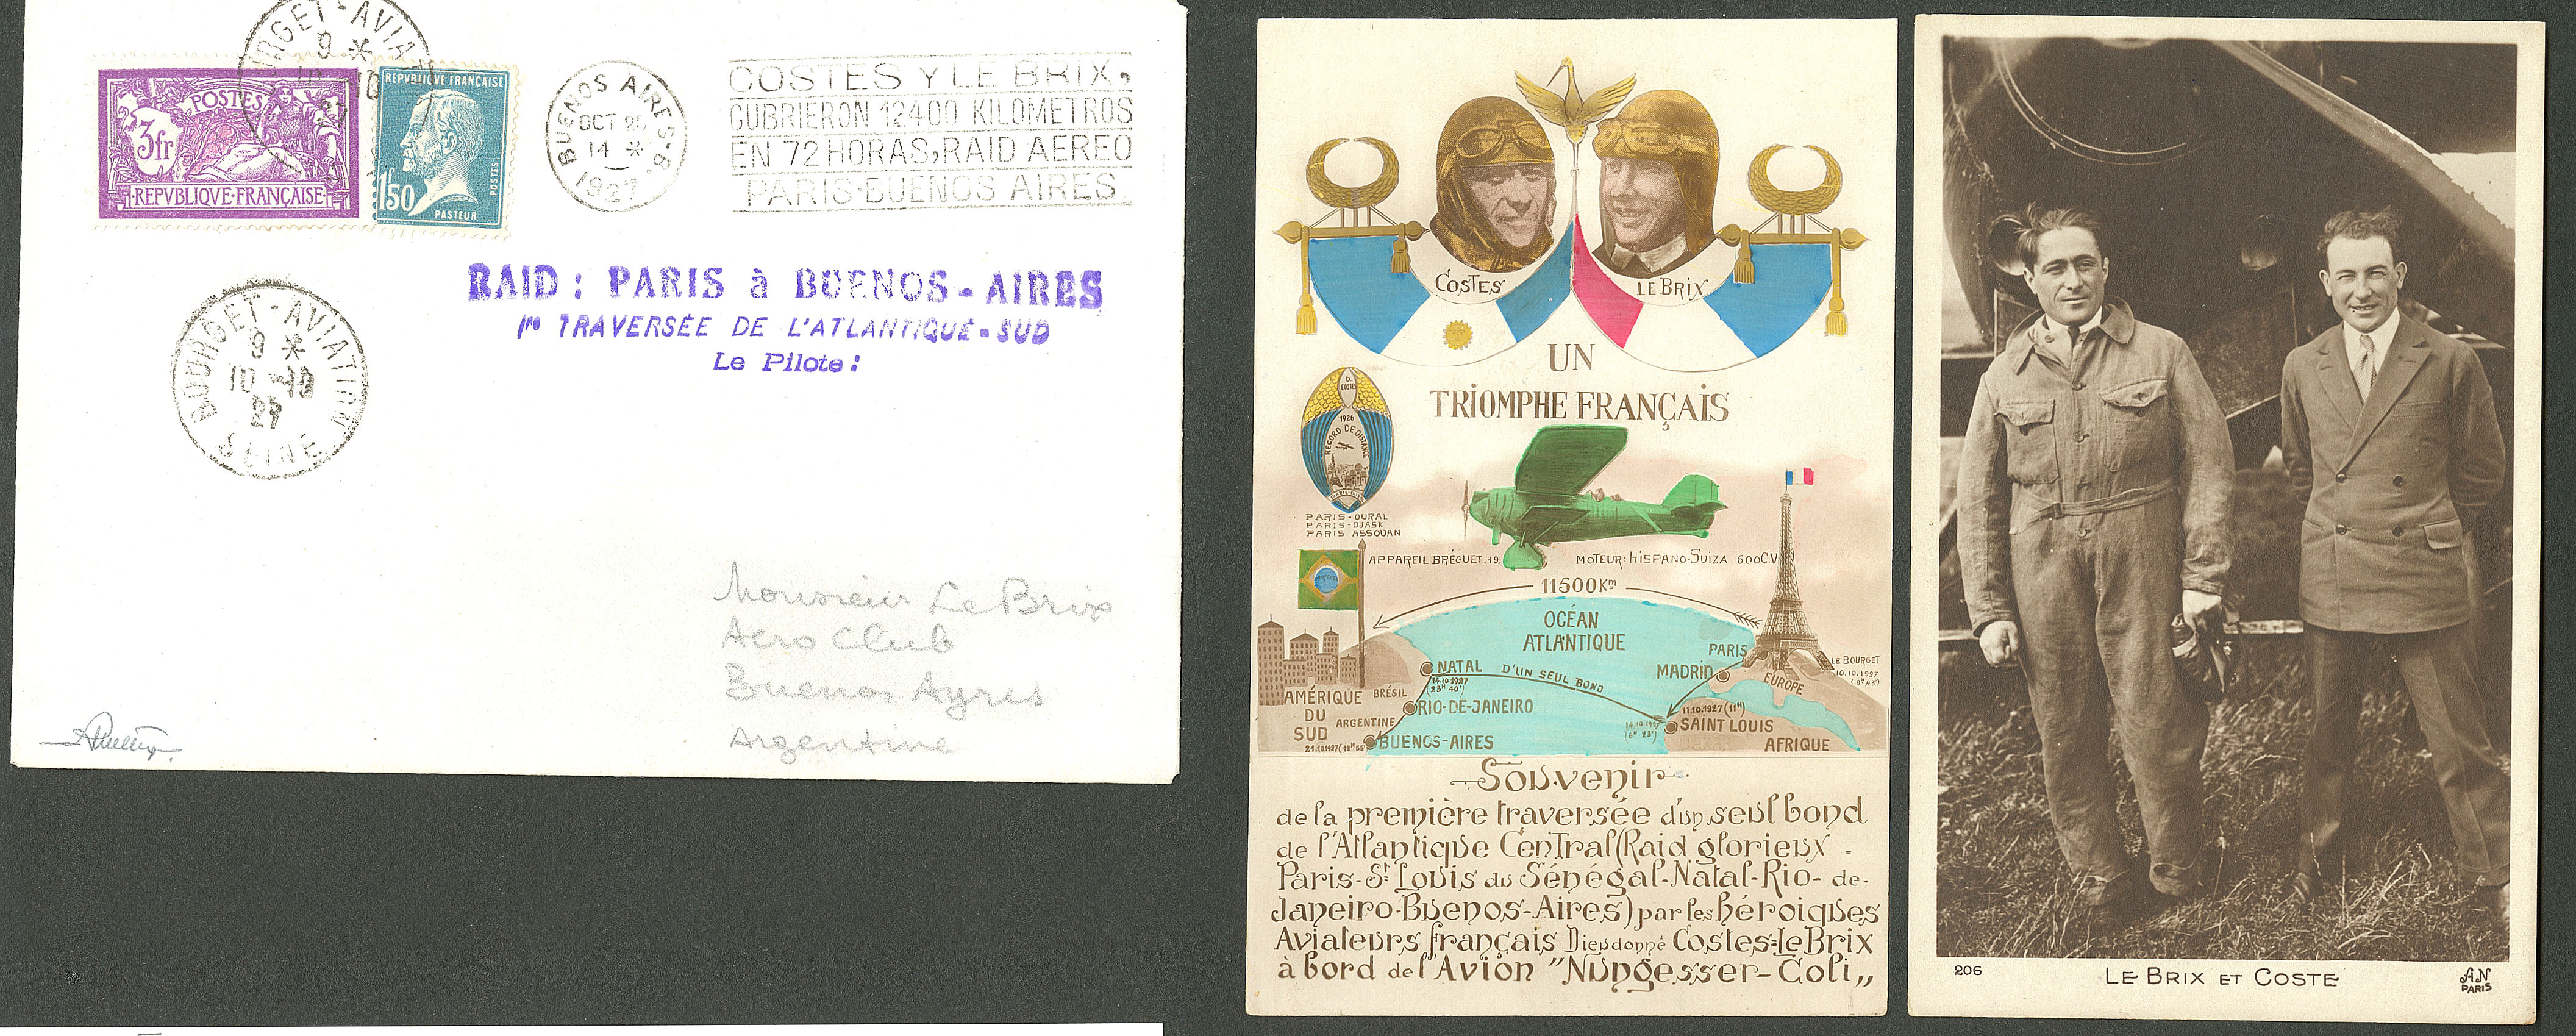 BOURGET-AVIATION
9 *
10 -10
27
POSTES
3fr
REPVBLIQVE·FRANÇAISE
REPUBLIQUE FRANÇAISE
1F50
POSTES
PASTEUR
BUENOS AIRES-6.
OCT 20
14 *
1927
COSTES Y LE BRIX,
CUBRIERON 12400 KILOMETROS
EN 72 HORAS, RAID AEREO
PARIS-BUENOS AIRES
RAID : PARIS à BUENOS-AIRES
1re TRAVERSÉE DE L'ATLANTIQUE-SUD
Le Pilote :
BOURGET-AVIATION
9 *
10 -10
27
SEINE
Monsieur Le Brix
Aero Club
Buenos Ayres
Argentine
COSTES
LE BRIX
UN
TRIOMPHE FRANÇAIS
D. COSTES
1926
RECORD DE DISTANCE
PARIS-OURAL
PARIS-DJASK
PARIS ASSOUAN
APPAREIL BRÉGUET.19.
MOTEUR: HISPANO-SUIZA 600C.V
11500Km
OCÉAN
ATLANTIQUE
PARIS
LE BOURGET
10.10.1927
(9H43')
MADRID
EUROPE
NATAL
D'UN SEUL BOND
14.10.1927
23H 40'
AMÉRIQUE
DU
SUD
BRÉSIL
RIO-DE-JANEIRO
ARGENTINE
11.10.1927 (11H)
14.10.1927
(6H 23')
SAINT LOUIS
BUENOS-AIRES
AFRIQUE
Souvenir
de la première traversée d'un seul bond
de l'Atlantique Central (Raid glorieux -
Paris-St Louis du Sénégal-Natal-Rio-de-
Janeiro-Buenos-Aires) par les héroïques
Aviateurs français Dieudonné Costes-Le Brix
à bord de l'Avion "Nungesser-Coli„
206
LE BRIX ET COSTE
AN
PARIS